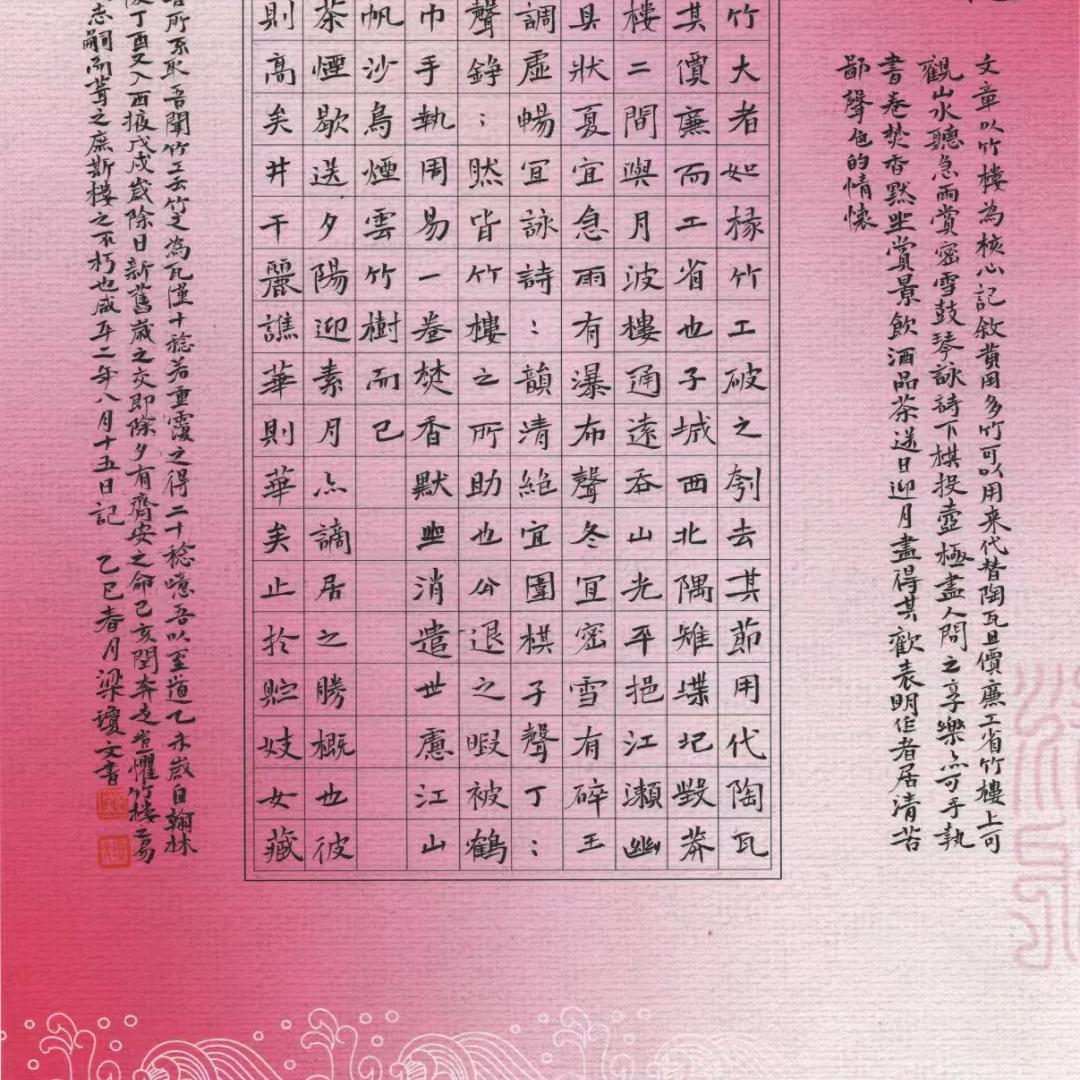 文章以竹樓為核心記敘黄岡多竹可以用来代替陶瓦且價廉工省竹樓上可
觀山水聽急雨賞密雪鼓琴詠詩下棋投壺極盡人間之享樂亦可手執
書卷焚香默坐賞景飲酒品茶送日迎月盡得其歡表明作者居清苦
鄙聲色的情懷
竹大者如椽竹工破之刳去其節用代陶瓦
其價廉而工省也子城西北隅雉堞圮毀莽
樓二間與月波樓通遠吞山光平挹江瀨幽
具狀夏宜急雨有瀑布聲冬宜密雪有碎玉
調虛暢宜詠詩：韻清絕宜圍棋子聲丁：
聲錚：然皆竹樓之所助也公退之暇被鶴
巾手執周易一卷焚香默坐消遣世慮江山
帆沙鳥煙雲竹樹而已
茶煙歇送夕陽迎素月亦謫居之勝概也彼
則高矣井干麗譙華則華矣止於貯妓女藏
所不取吾聞竹工云竹之為瓦僅十稔若重覆之得二十稔噫吾以至道乙未歲自翰林
丁酉又入西掖戊戌歲除日新舊歲之交即除夕有齊安之命己亥閏奔走豈懼竹樓之易
志嗣而葺之庶斯樓之不朽也咸平二年八月十五日記 乙巳春月梁瓊文書